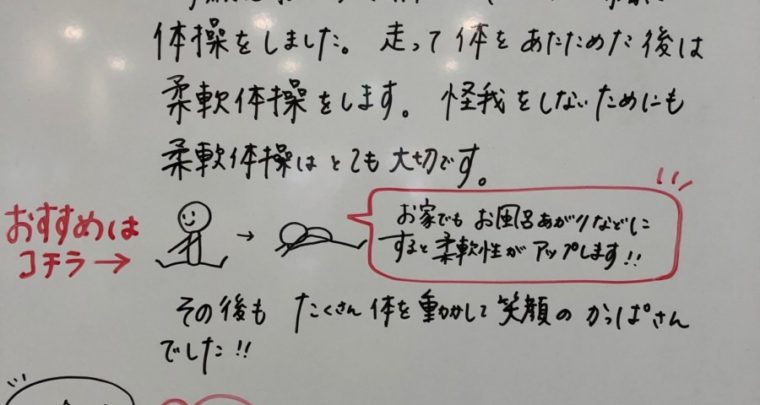 体操をしました。走って体をあたためた後は
柔軟体操をします。怪我をしないためにも
柔軟体操はとても大切です。
おすすめは
コチラ→
お家でもお風呂あがりなどに
すると柔軟性がアップします!!
その後もたくさん体を動かして笑顔のかっぱさん
でした!!